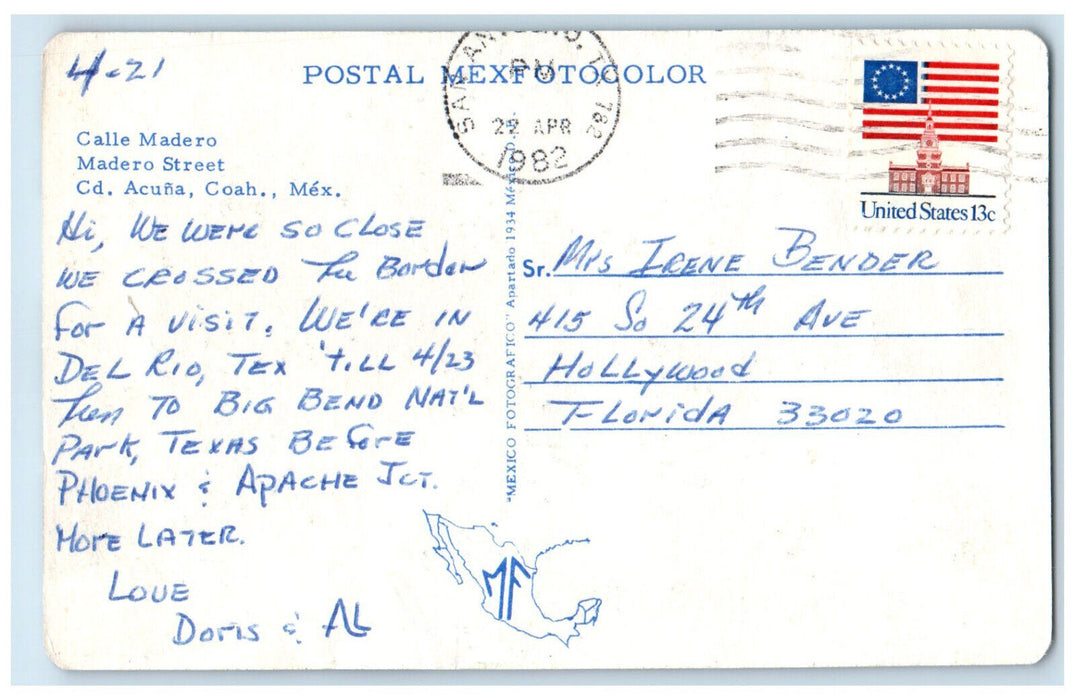 4-21
POSTAL MEXFOTOCOLOR
SAN ANTONIO, TX 782
PM
22 APR
1982
United States 13c
Calle Madero
Madero Street
Cd. Acuña, Coah., Méx.
Hi, WE WERE SO CLOSE
WE CROSSED The Border
For A VISIT. WE'RE IN
DEL RIO, TEX 'TILL 4/23
Then TO BIG BEND NAT'L
PArK, TEXAS BEforE
PHOENIX & APACHE JCT.
MorE LATER.
LOVE
Doris & AL
"MEXICO FOTOGRAFICO" Apartado 1934 México, D.F.
Sr. Mrs IRENE BENDER
415 So 24th AVE
HOLLywood
FLoriDA 33020
MF